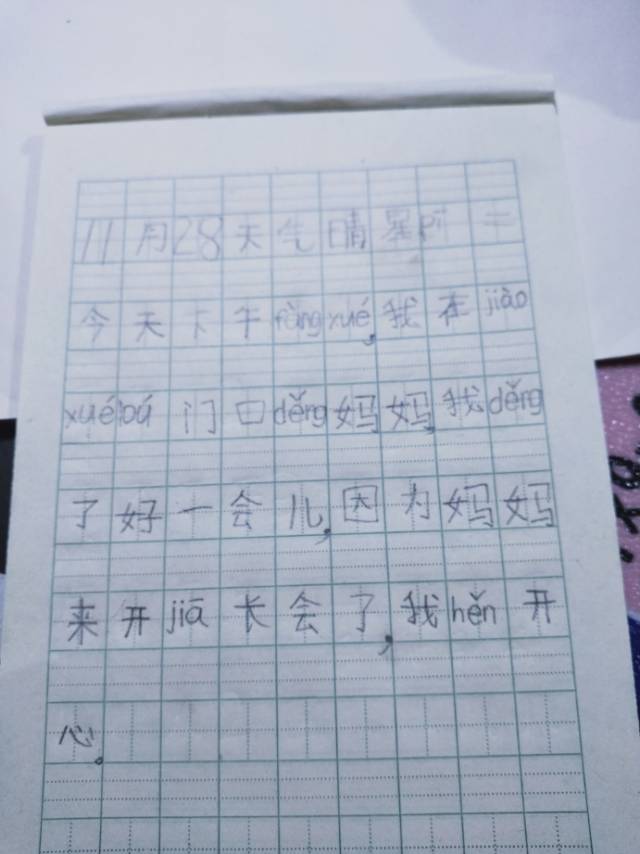 11月28天气晴星
今天下午fàngxué,我在jiào
xuélóu门口děng妈妈我děng
了好一会儿,因为妈妈
来开jiā长会了,我hěn开
心。